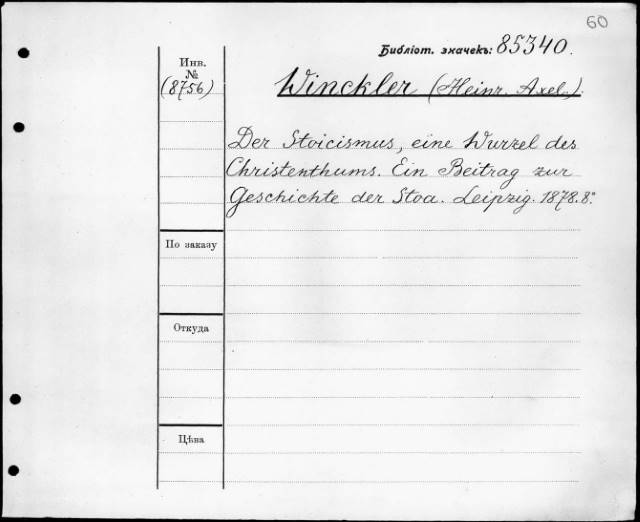 60
Библіот. значекъ: 85340.
Инв.
№
(8756)
Winckler (Heinr. Axel.).
Der Stoicismus, eine Wurzel des
Christenthums. Ein Beitrag zur
Geschichte der Stoa. Leipzig. 1878. 8°.
По заказу
Откуда
Цѣна